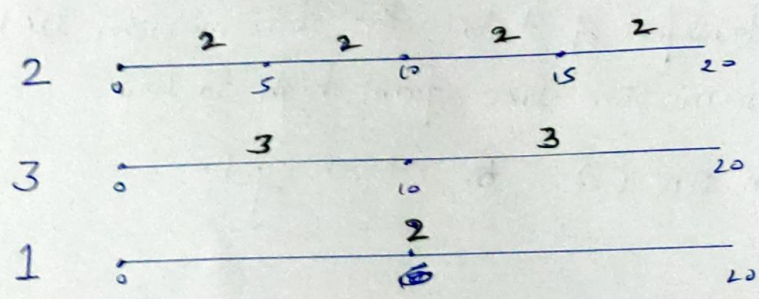 2 2 2 2
2
0 5 10 15 20
3 3
3
0 10 20
2
1
0 20